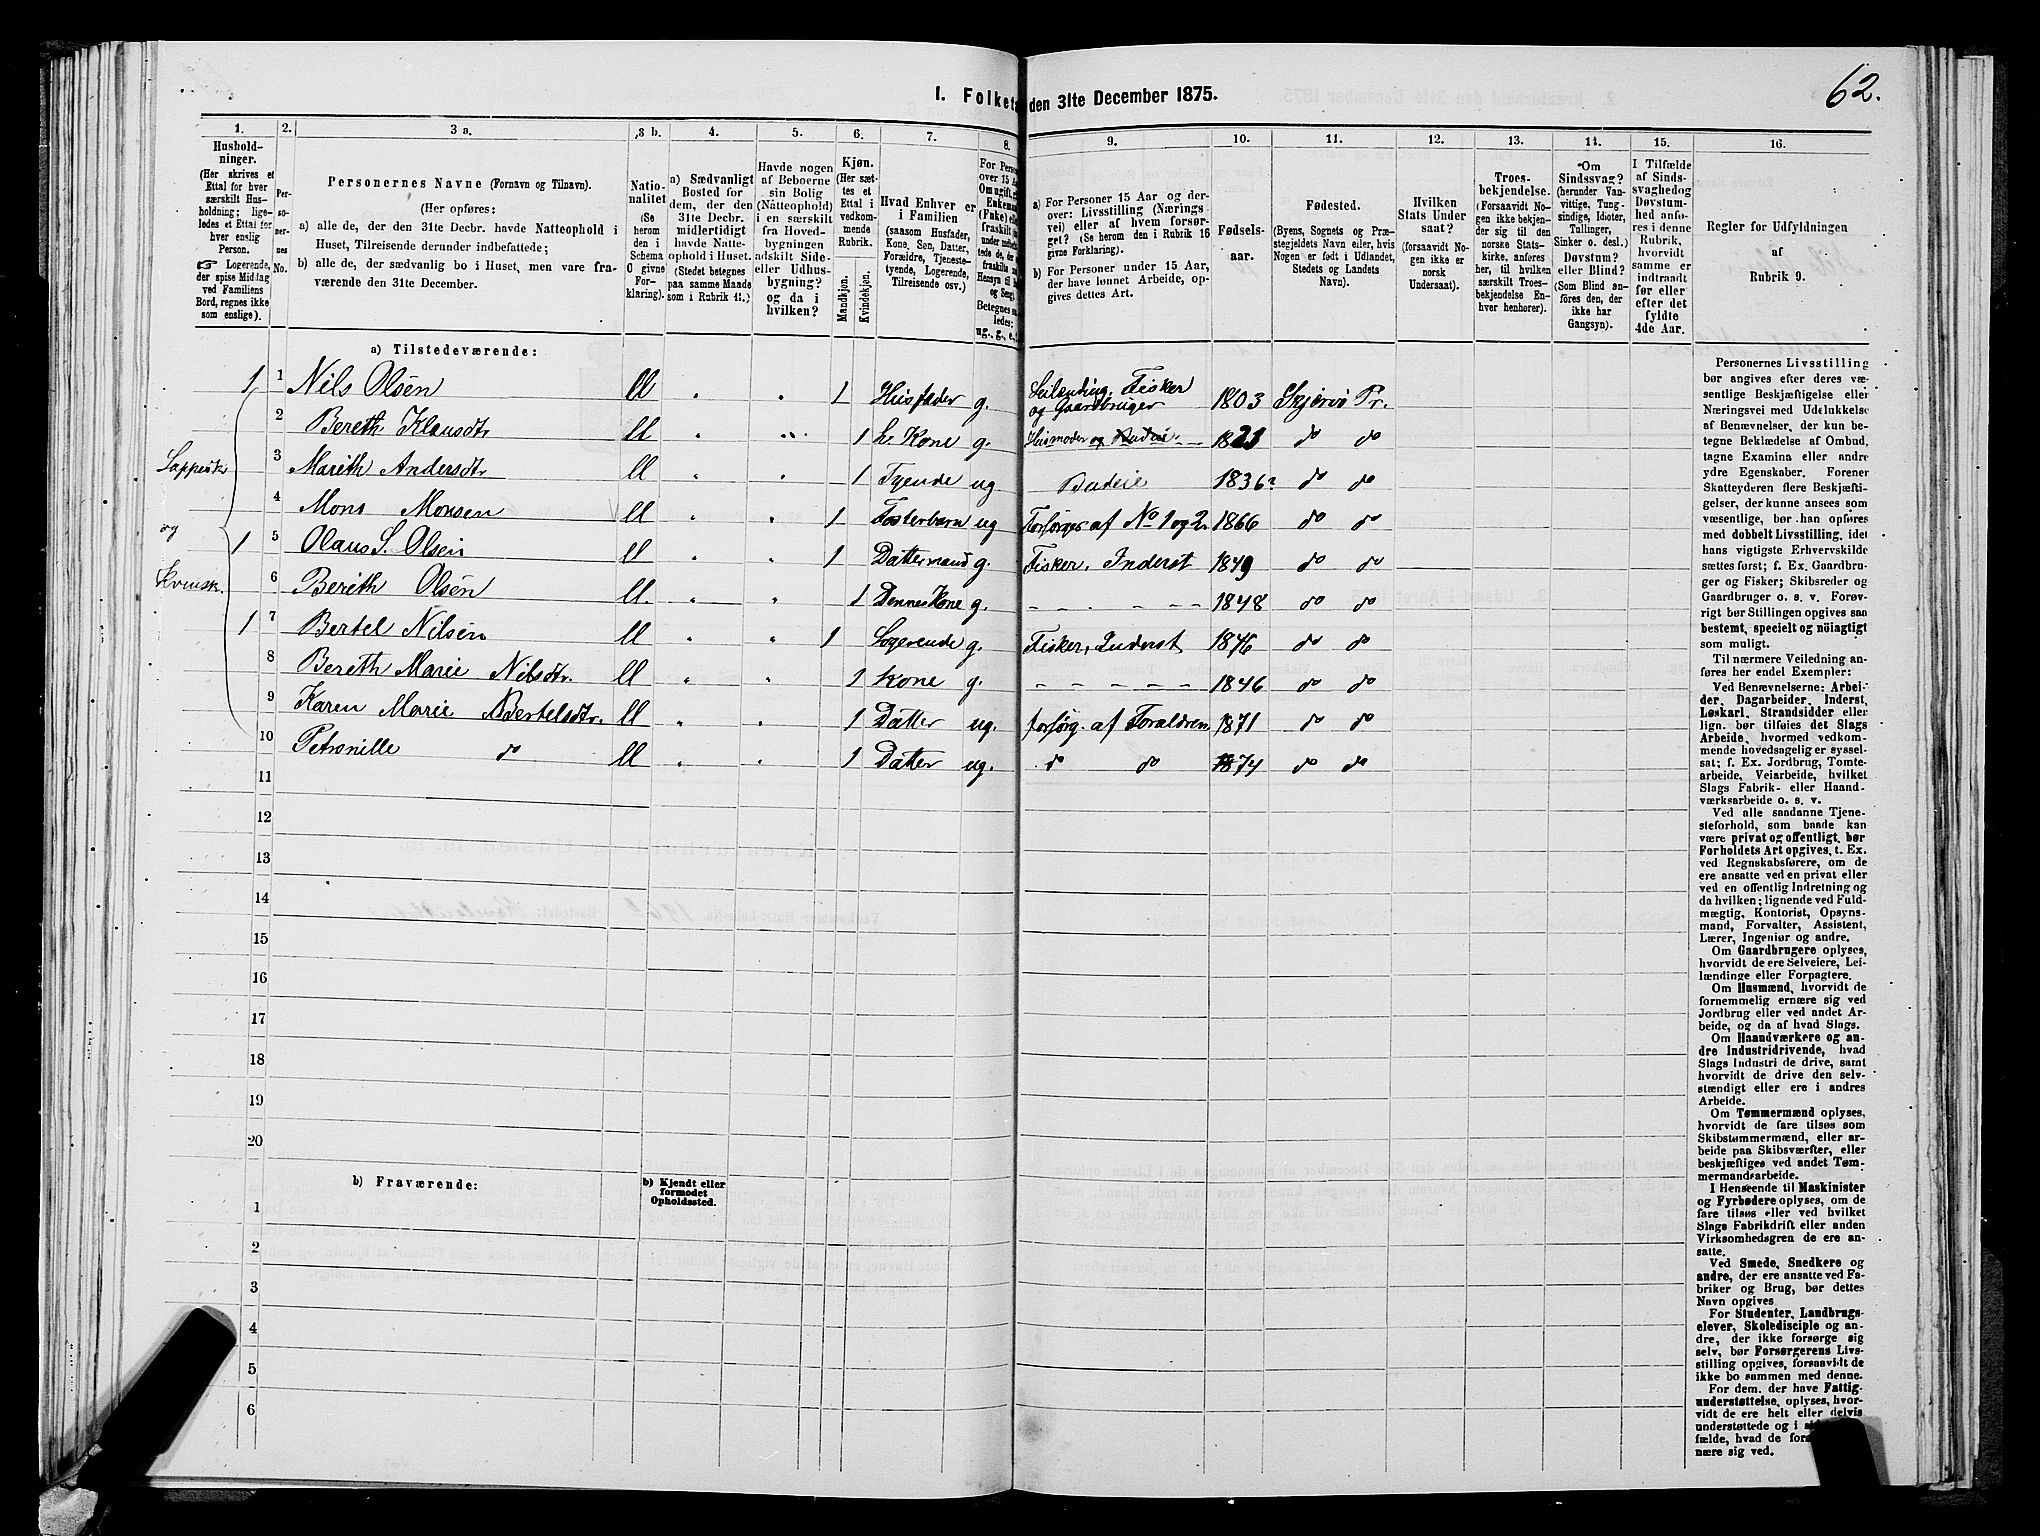 62.
I. Folketæ
den 31te December 1875.
1. 2. 3 a. 3 b. 4. 5. 6. 7. 8. 9. 10. 11. 12. 13. 14. 15. 16.
Hushold-
ninger.
(Her skrives et
Ettal for hver
særskilt Hus-
holdning; lige-
ledes et Ettal for
hver enslig
Person.
☞ Logerende,
der spise Middag
ved Familiens
Bord, regnes ikke
som enslige).
Per-
so-
ner-
nes
No.
Personernes Navne (Fornavn og Tilnavn).
(Her opføres:
a) alle de, der den 31te Decbr. havde Natteophold i
Huset, Tilreisende derunder indbefattede;
b) alle de, der sædvanlig bo i Huset, men vare fra-
værende den 31te December.
Natio-
nalitet
(Se
herom
den i
Schema
O givne
For-
klaring).
a) Sædvanligt
Bosted for
dem, der den
31te Decbr.
midlertidigt
havde Natte-
ophold i Huset.
(Stedet betegnes
paa samme Maade
som i Rubrik 11.)
Havde nogen
af Beboerne
sin Bolig
(Natteophold)
i en særskilt
fra Hoved-
bygningen
adskilt Side-
eller Udhus-
bygning?
og da i
hvilken?
Kjøn.
(Her sæt-
tes et
Ettal i
vedkom-
mende
Rubrik.
Mandkjøn.
Kvindekjøn.
Hvad Enhver er
i Familien
(saasom Husfader,
Kone, Søn, Datter,
Forældre, Tjeneste-
tyende, Logerende,
Tilreisende osv.)
For Person
over 15 Aa
Om ugift, g
Enkemand
(Enke) elle
fraskilt
ledes:
ug., g., e.,
a) For Personer 15 Aar og der-
over: Livsstilling (Nærings
vei) eller af hvem forsør-
get? (Se herom den i Rubrik 16
givne Forklaring).
b) For Personer under 15 Aar,
der have lønnet Arbeide, op-
gives dettes Art.
Fødsels-
aar.
Fødested.
(Byens, Sognets og Præ-
stegjeldets Navn eller, hvis
Nogen er født i Udlandet,
Stedets og Landets
Navn).
Hvilken
Stats Under
saat?
(forsaavidt No-
gen ikke er
norsk
Undersaat).
Troes-
bekjendelse.
(Forsaavidt No-
gen ikke bekjen-
der sig til den
norske Stats-
kirke, anføres
her, til hvilken
særskilt Troes-
bekjendelse En-
hver henhører).
Om
Sindssvag?
(herunder Van-
vittige, Tung-
sindige, Idioter,
Tullinger,
Sinker o. desl.)
Døvstum?
eller Blind?
(Som Blind an-
føres den, der
ikke har
Gangsyn).
I Tilfælde
af Sinds-
svaghed og
Døvstum-
hed anfø-
res i denne
Rubrik,
hvorvidt
samme er
indtraadt
før eller
efter det
fyldte
4de Aar.
Regler for Udfyldningen
af
Rubrik 9.
a) Tilstedeværende:
Lappisk
og
Kvensk.
1 1 Nils Olsen ll " " 1 Husfader g. Leilænding, Fisker
og Gaardbruger 1803 Skjervø Pr.
2 Bereth Klausdtr ll " " 1 h. Kone g. Husmoder og Budeie 1821 do do
3 Marith Andersdtr ll " " 1 Tyende ug Budeie 1836? do do
4 Mons Monsen ll " " 1 Fosterbarn ug Forsørges af No 1 og 2 1866 do do
1 5 Olaus S. Olsen ll " " 1 Dattermand g. Fisker, Inderst 1849 do do
6 Berith Olsen ll. " " 1 Dennes Kone g. - - - - - - 1848 do do
1 7 Bertel Nilsen ll " " 1 Logerende g. Fisker, Inderst 1846 do do
8 Bereth Marie Nilsdtr. ll " " 1 Kone g. - - - - - - 1846 do do
9 Karen Marie Bertelsdtr. ll " " 1 Datter ug. forsørg. af Forældren 1871 do do
10 Petronille do ll " " 1 Datter ug. do do 1874 do do
11
12
13
14
15
16
17
18
19
20
b) Fraværende:
b) Kjendt eller
formodet
Opholdssted.
1
2
3
4
5
6
Personernes Livsstilling
bør angives efter deres væ-
sentlige Beskjæftigelse eller
Næringsvei med Udelukkelse
af Benævnelser, der kun be-
tegne Beklædelse af Ombud,
tagne Examina eller andre
ydre Egenskaber. Forener
Skatteyderen flere Beskjæfti-
gelser, der kunne ansees som
væsentlige, bør han opføres
med dobbelt Livsstilling, idet
hans vigtigste Erhvervskilde
sættes først; f. Ex. Gaardbru-
ger og Fisker; Skibsreder og
Gaardbruger o. s. v. Forøv-
rigt bør Stillingen opgives saa
bestemt, specielt og nöiagtigt
som muligt.
Til nærmere Veiledning an-
føres her endel Exempler:
Ved Benævnelserne: Arbei-
der, Dagarbeider, Inderst,
Løskarl, Strandsidder eller
lign. bør tilføies det Slags
Arbeide, hvormed vedkom-
mende hovedsagelig er syssel-
sat; f. Ex. Jordbrug, Tomte-
arbeide, Veiarbeide, hvilket
Slags Fabrik- eller Haand-
værksarbeide o. s. v.
Ved alle saadanne Tjene-
steforhold, som baade kan
være privat og offentligt, bør
Forholdets Art opgives, t. Ex.
ved Regnskabsførere, om de
ere ansatte ved en privat eller
ved en offentlig Indretning og
da hvilken; lignende ved Fuld-
mægtig, Kontorist, Opsyns-
mand, Forvalter, Assistent,
Lærer, Ingeniør og andre.
Om Gaardbrugere oplyses,
hvorvidt de ere Selveiere, Lei-
lændinge eller Forpagtere.
Om Husmænd, hvorvidt de
fornemmelig ernære sig ved
Jordbrug eller ved andet Ar-
beide, og da af hvad Slags.
Om Haandværkere og an-
dre Industridrivende, hvad
Slags Industri de drive, samt
hvorvidt de drive den selv-
stændigt eller ere i andres
Arbeide.
Om Tømmermænd oplyses,
hvorvidt de fare tilsøs som
Skibstømmermænd, eller ar-
beide paa Skibsværfter, eller
beskjæftiges ved andet Tøm-
mermandsarbeide.
I Henseende til Maskinister
og Fyrbødere oplyses, om de
fare tilsøs eller ved hvilket
Slags Fabrikdrift eller anden
Virksomhedsgren de ere an-
satte.
Ved Smede, Snedkere og
andre, der ere ansatte ved Fa-
briker og Brug, bør dettes
Navn opgives
For Studenter, Landbrugs-
elever, Skoledisciple og an-
dre, der ikke forsørge sig
selv, bør Forsørgerens Livs-
stilling opgives, forsaavidt de
ikke bo sammen med denne.
For dem, der have Fattig-
understøttelse, oplyses, hvor-
vidt de ere helt eller delvis
understøttede og i
fælde, hvad de for
nære sig ved.